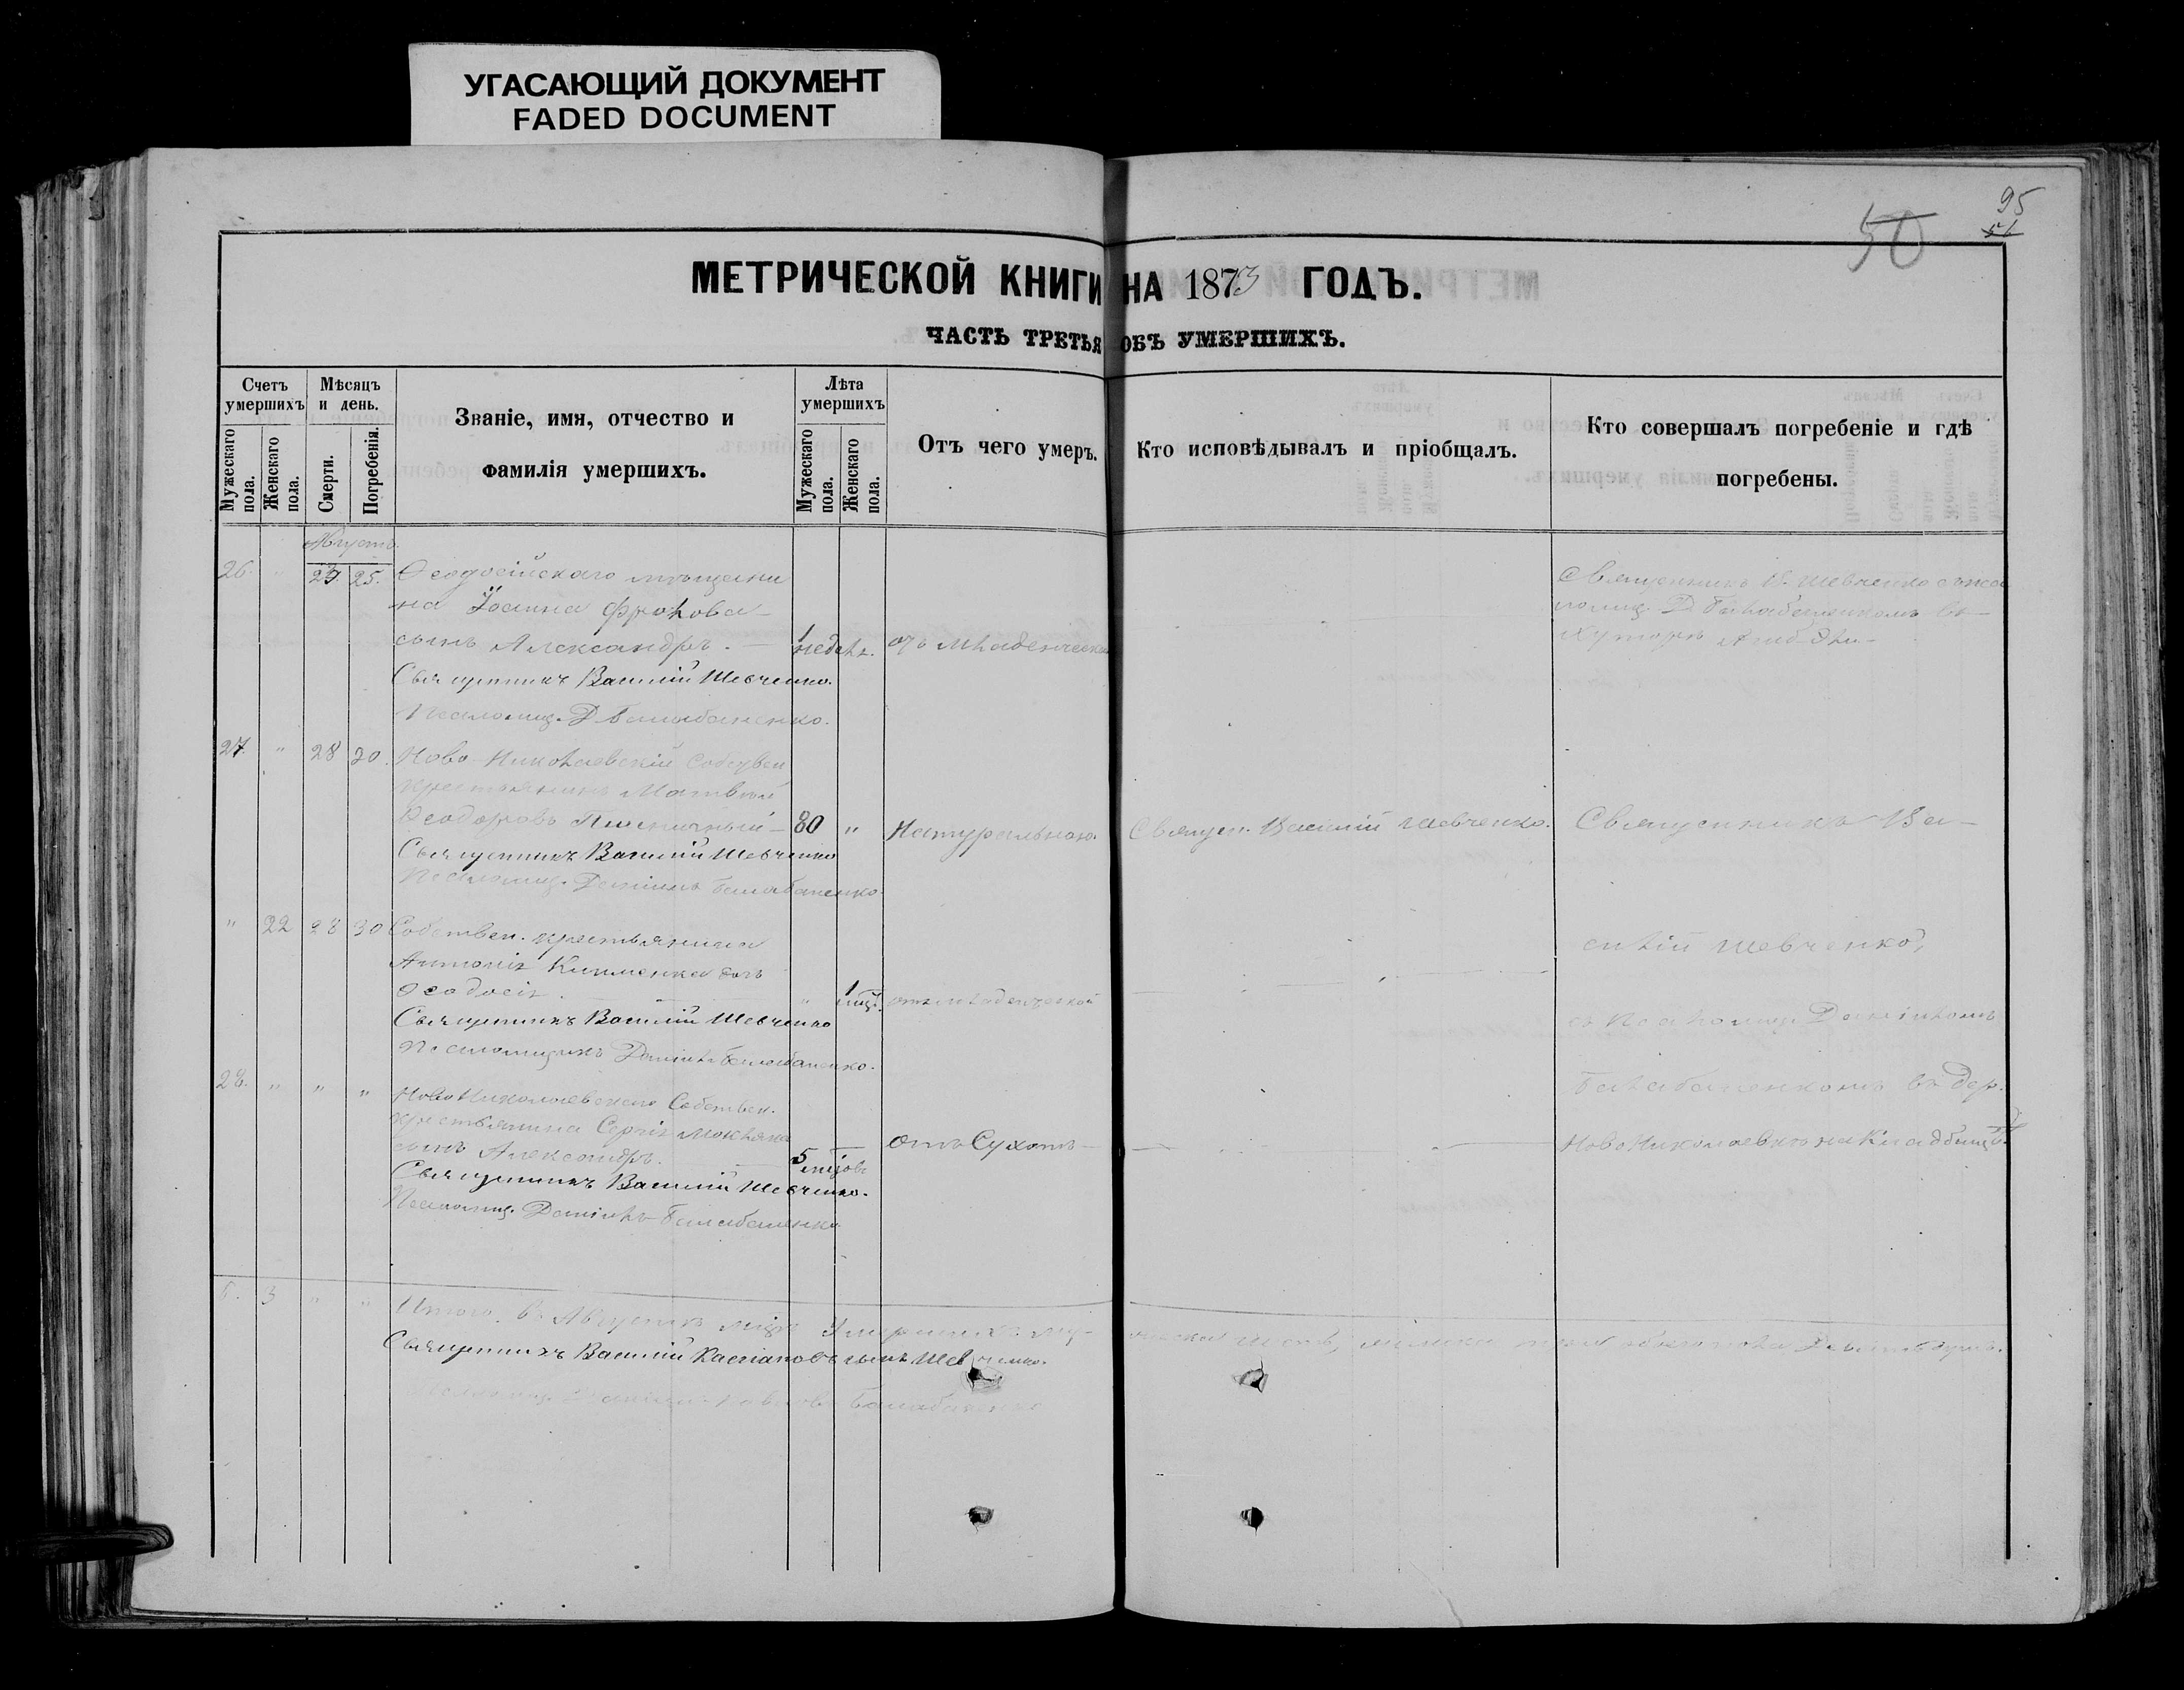 УГАСАЮЩИЙ ДОКУМЕНТ
FADED DOCUMENT
95
51
50
МЕТРИЧЕСКОЙ КНИГИ НА 1873 ГОДЪ.
ЧАСТЬ ТРЕТЬЯ ОБЪ УМЕРШИХЪ.
Счетъ умершихъ
Мужескаго пола.
Женскаго пола.
Мѣсяцъ и день.
Смерти.
Погребенія.
Званіе, имя, отчество и
фамилія умершихъ.
Лѣта умершихъ
Мужескаго пола.
Женскаго пола.
Отъ чего умеръ.
Кто исповѣдывалъ и пріобщалъ.
Кто совершалъ погребеніе и гдѣ
погребены.
Августъ.
26. 25. Ѳеодосійскаго мѣщани
на Іоанна
сынъ Александръ. 1 недѣл. отъ младенческой
Священникъ В. Шевченко съ псал
помщ. Д. Балабаненкомъ въ
хуторѣ
Священникъ Василій Шевченко.
Псаломщ. Д Балабаненко.
27. " 28 30. Ново-Николаевскій собствен
крестьянинъ Матвѣй
Ѳеодоровъ Пшеничный 80 " Натуральною. Священ. Василій Шевченко. Священникъ Ва-
Священникъ Василій Шевченко
Псаломщ. Даніилъ Балабаненко.
" 22 28 30 Собствен. крестьянина
Антонія дочь
Ѳеодосія. " 1 мц. отъ младенческой
силій Шевченко,
Священникъ Василій Шевченко
съ Псаломщ. Даніиломъ
Псаломщикъ Даніилъ Балабаненко.
Балабаненкомъ въ дер.
28. " " " Ново Николаевскаго Собствен.
крестьянина Сергія
сынъ Александръ. 5 мцовъ Отъ Сухотъ
Ново Николаевкѣ на Кладбищѣ.
Священникъ Василій Шевченко.
Псаломщ. Даніилъ Балабаненко.
3 " " Итого въ Августѣ мцѣ Умершихъ му-
жеска женска три обоего пола Девять душъ.
Священникъ Василій Касіановъ сынъ Шевченко.
Балабаненко